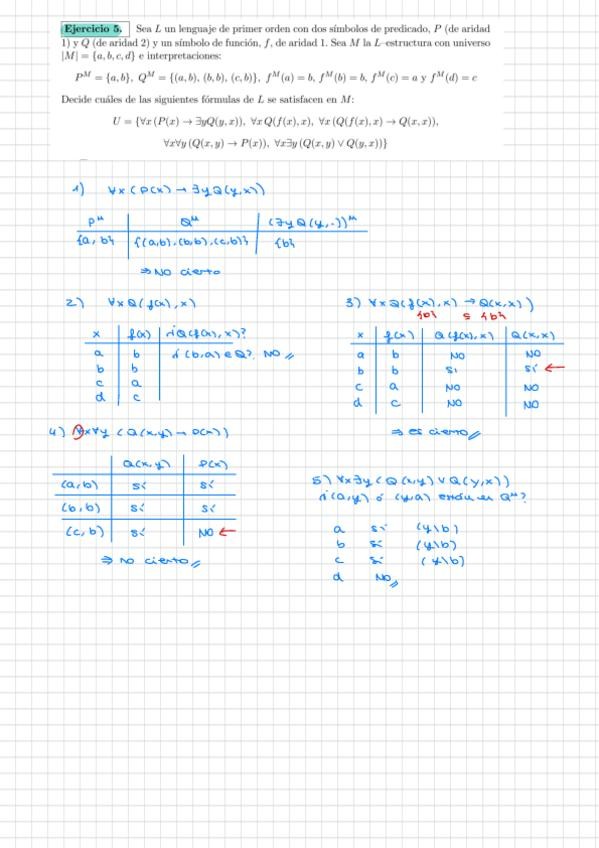 Ejercicio 5. Sea L un lenguaje de primer orden con dos símbolos de predicado, P (de aridad
1) y Q (de aridad 2) y un símbolo de función, f, de aridad 1. Sea M la L–estructura con universo
|M| = {a, b, c, d} e interpretaciones:
P^M = {a, b}, Q^M = {(a, b), (b, b), (c, b)}, f^M(a) = b, f^M(b) = b, f^M(c) = a y f^M(d) = c
Decide cuáles de las siguientes fórmulas de L se satisfacen en M:
U = {∀x (P(x) → ∃yQ(y, x)), ∀x Q(f(x), x), ∀x (Q(f(x), x) → Q(x, x)),
∀x∀y (Q(x, y) → P(x)), ∀x∃y (Q(x, y) ∨ Q(y, x))}
1) ∀x (P(x) → ∃y Q(y,x))
P^M Q^M (∃y Q(y,·))^M
{a, b} {(a,b), (b,b), (c,b)} {b}
⇒ No cierto
2) ∀x Q(f(x), x)
x f(x) ¿Q(f(x), x)?
a b ¿(b,a) ∈ Q? NO //
b b
c a
d c
3) ∀x Q(f(x), x) → Q(x,x))
{b} {b}
x f(x) Q(f(x), x) Q(x,x)
a b NO NO
b b SI SÍ ←
c a NO NO
d c NO NO
⇒ es cierto //
4) ∀x∀y (Q(x,y) → P(x))
Q(x,y) P(x)
(a,b) SÍ SÍ
(b,b) SÍ SÍ
(c,b) SÍ NO ←
⇒ no cierto //
5) ∀x∃y (Q(x,y) ∨ Q(y,x))
¿(a,y) ó (y,a) en Q^M?
a SÍ (y\b)
b SÍ (y\b)
c SÍ (y\b)
d NO //